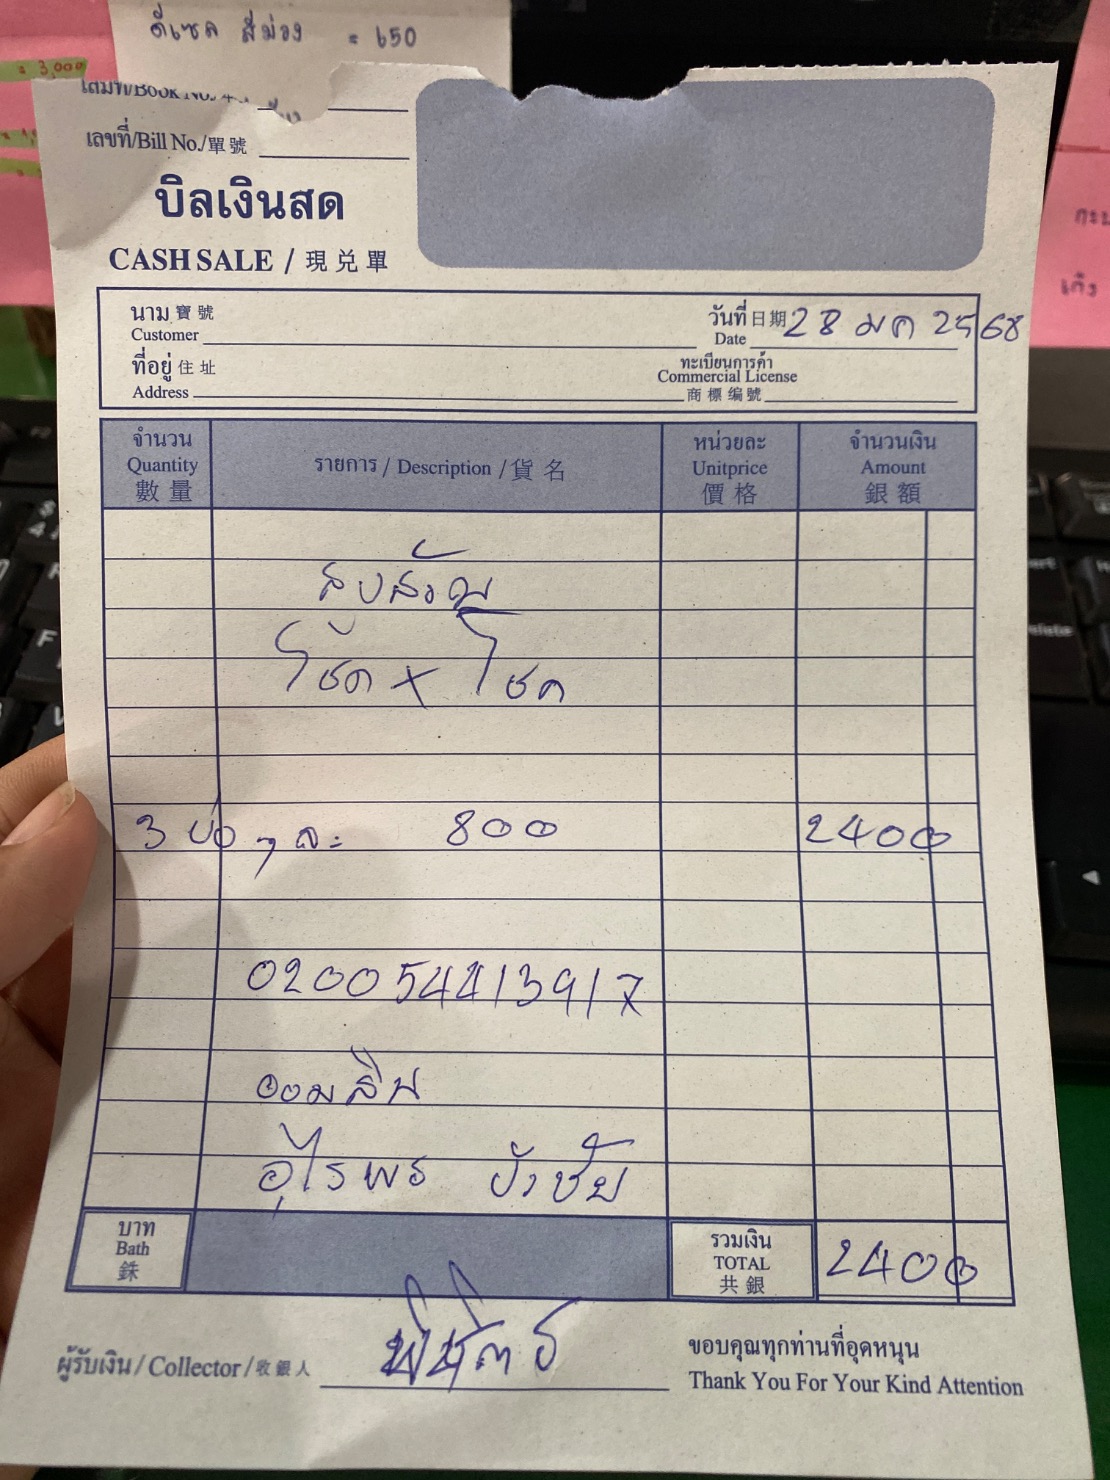 ดีเซล สีม่วง = 650
= 3,000
เล่มที่/Book No.
เลขที่/Bill No./單號
บิลเงินสด
CASH SALE / 現兑單
นาม 寶號
Customer
วันที่ 日期 28 มค 2568
Date
ที่อยู่ 住址
Address
ทะเบียนการค้า
Commercial License
商標編號
จำนวน
Quantity
數量
รายการ / Description / 貨名
หน่วยละ
Unitprice
價格
จำนวนเงิน
Amount
銀額
โชค
3 บ่อ ๆ ละ 800 2400
020054413917
ออมสิน
อุไรพร
บาท
Bath
銖
รวมเงิน
TOTAL
共銀
2400
ผู้รับเงิน / Collector / 收銀人
ขอบคุณทุกท่านที่อุดหนุน
Thank You For Your Kind Attention